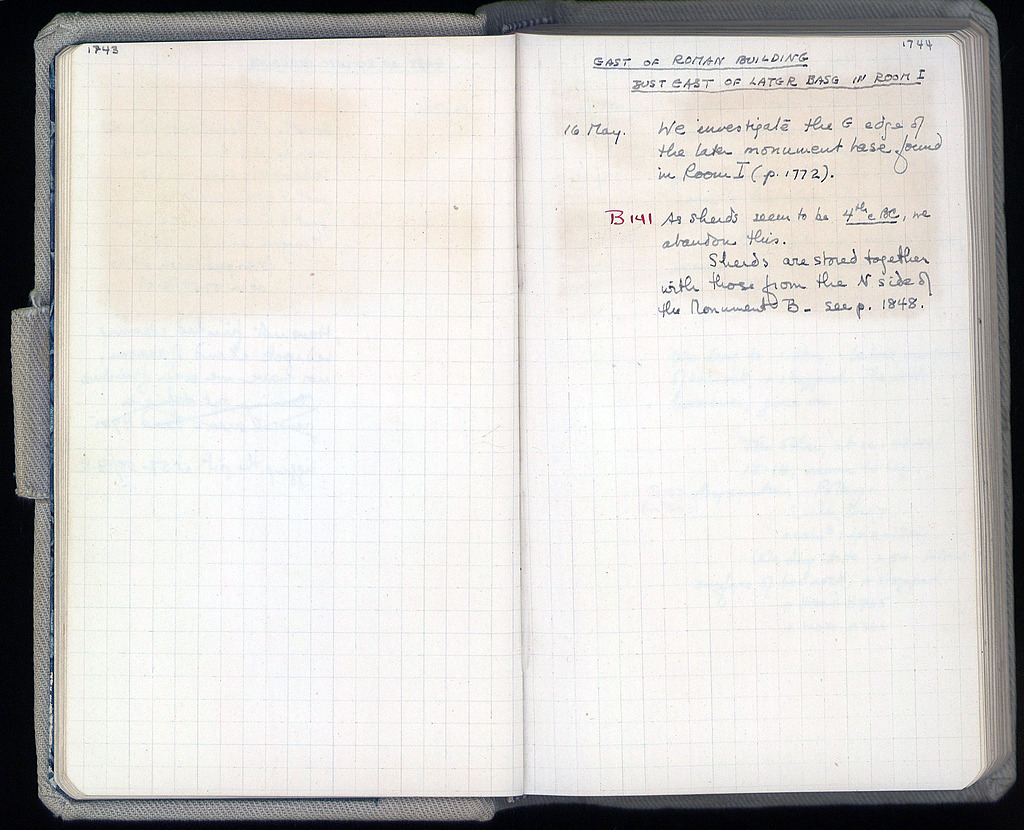 1743
1744
EAST OF ROMAN BUILDING
JUST EAST OF LATER BASE IN ROOM I
16 May. We investigate the E edge of
the late monument base found
in Room I (p. 1772).
B 141 As sherds seem to be 4th c BC, we
abandon this.
Sherds are stored together
with those from the N side of
the Monument B - see p. 1848.